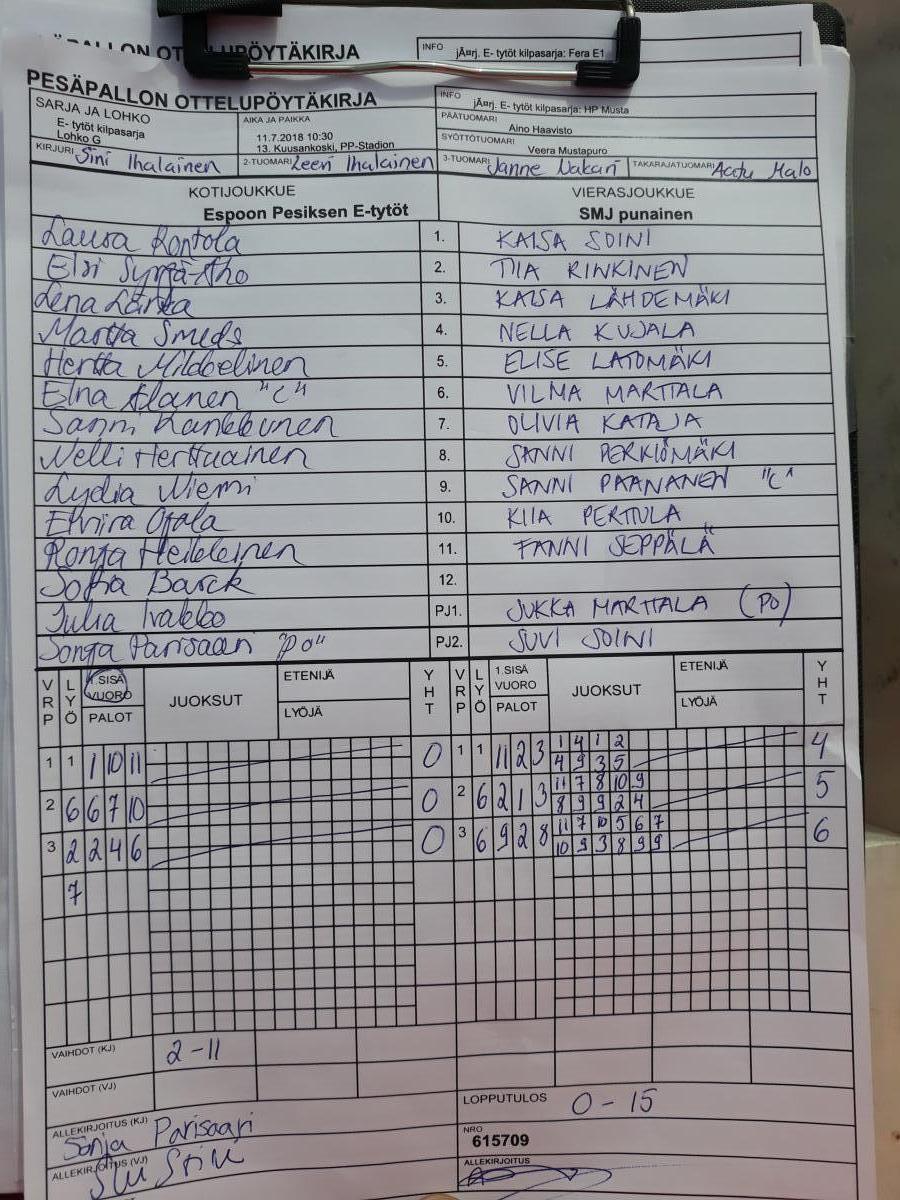 PÄPALLON OTTELUPÖYTÄKIRJA INFO jÄ¤rj. E- tytöt kilpasarja: Fera E1
PESÄPALLON OTTELUPÖYTÄKIRJA
INFO jÄ¤rj. E- tytöt kilpasarja: HP Musta
SARJA JA LOHKO
E- tytöt kilpasarja
Lohko G
AIKA JA PAIKKA
11.7.2018 10:30
13. Kuusankoski, PP-Stadion
PÄÄTUOMARI Aino Haavisto
SYÖTTÖTUOMARI Veera Mustapuro
KIRJURI Sini Ihalainen 2-TUOMARI Leeni Ihalainen 3-TUOMARI Janne Nakari TAKARAJATUOMARI Aatu Malo
KOTIJOUKKUE VIERASJOUKKUE
Espoon Pesiksen E-tytöt SMJ punainen
Laura Rontola 1. KAISA SOINI
Elsi Syrjä-Aho 2. TIIA RINKINEN
Lena 3. KAISA LÄHDEMÄKI
Martta Smeds 4. NELLA KUJALA
Hertta 5. ELISE LATOMÄKI
Elna Alanen "C" 6. VILMA MARTTALA
Sanni Kankkunen 7. OLIVIA KATAJA
Nelli Herttuainen 8. SANNI PERKIÖMÄKI
Lydia Niemi 9. SANNI PAANANEN "C"
Elviira Ojala 10. KIIA PERTTULA
Ronja Heikkinen 11. FANNI SEPPÄLÄ
Sofia Barck 12.
Julia Ivakko PJ1. JUKKA MARTTALA (PO)
Sonja Parisaari "PO" PJ2. SUVI SOINI
VRP LYÖ 1.SISÄ VUORO PALOT JUOKSUT ETENIJÄ LYÖJÄ YHT VRP LYÖ 1.SISÄ VUORO PALOT JUOKSUT ETENIJÄ LYÖJÄ YHT
1 1 1 10 11 0 1 1 11 2 3 1 4 1 2 4
4 9 3 5
2 6 6 7 10 0 2 6 2 1 3 11 7 8 10 9 5
8 9 9 2 4
3 2 2 4 6 0 3 6 9 2 8 11 7 10 5 6 7 6
10 9 3 8 9 9
7
VAIHDOT (KJ) 2-11
VAIHDOT (VJ)
LOPPUTULOS 0 - 15
ALLEKIRJOITUS (KJ) Sonja Parisaari
NRO
615709
ALLEKIRJOITUS (VJ)
ALLEKIRJOITUS